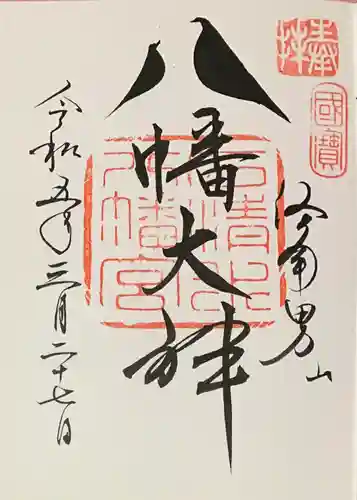 奉拝
國寶
洛南男山
八幡大神
石清水八幡宮
令和五年三月二十七日